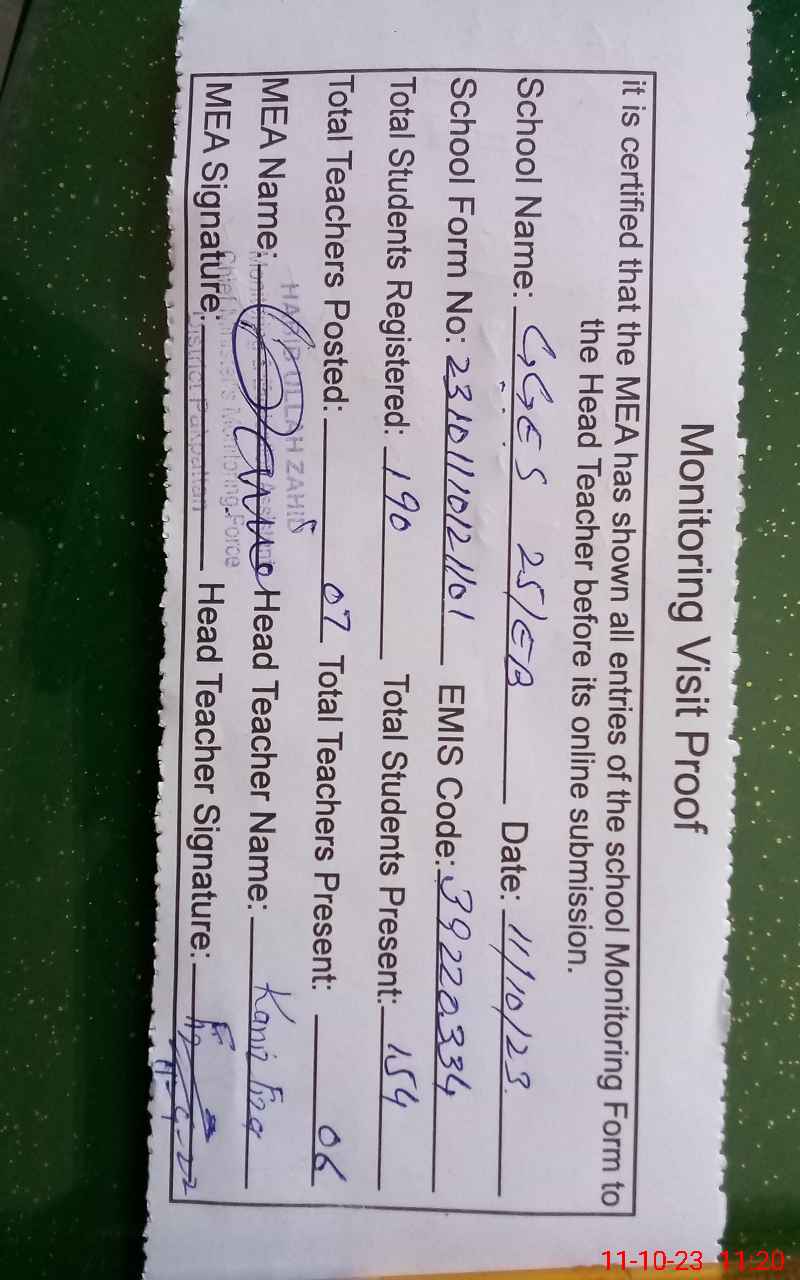 Monitoring Visit Proof
it is certified that the MEA has shown all entries of the school Monitoring Form to
the Head Teacher before its online submission.
School Name: GGES 25/EB Date: 11/10/23
School Form No: 23101110121101 EMIS Code: 39220334
Total Students Registered: 190 Total Students Present: 154
Total Teachers Posted: 07 Total Teachers Present: 06
HABIB ULLAH ZAHID
MEA Name: Head Teacher Name: Kaniz
Chief Minister's Monitoring Force
MEA Signature: Head Teacher Signature:
District Pakpattan
11-10-23 11:20